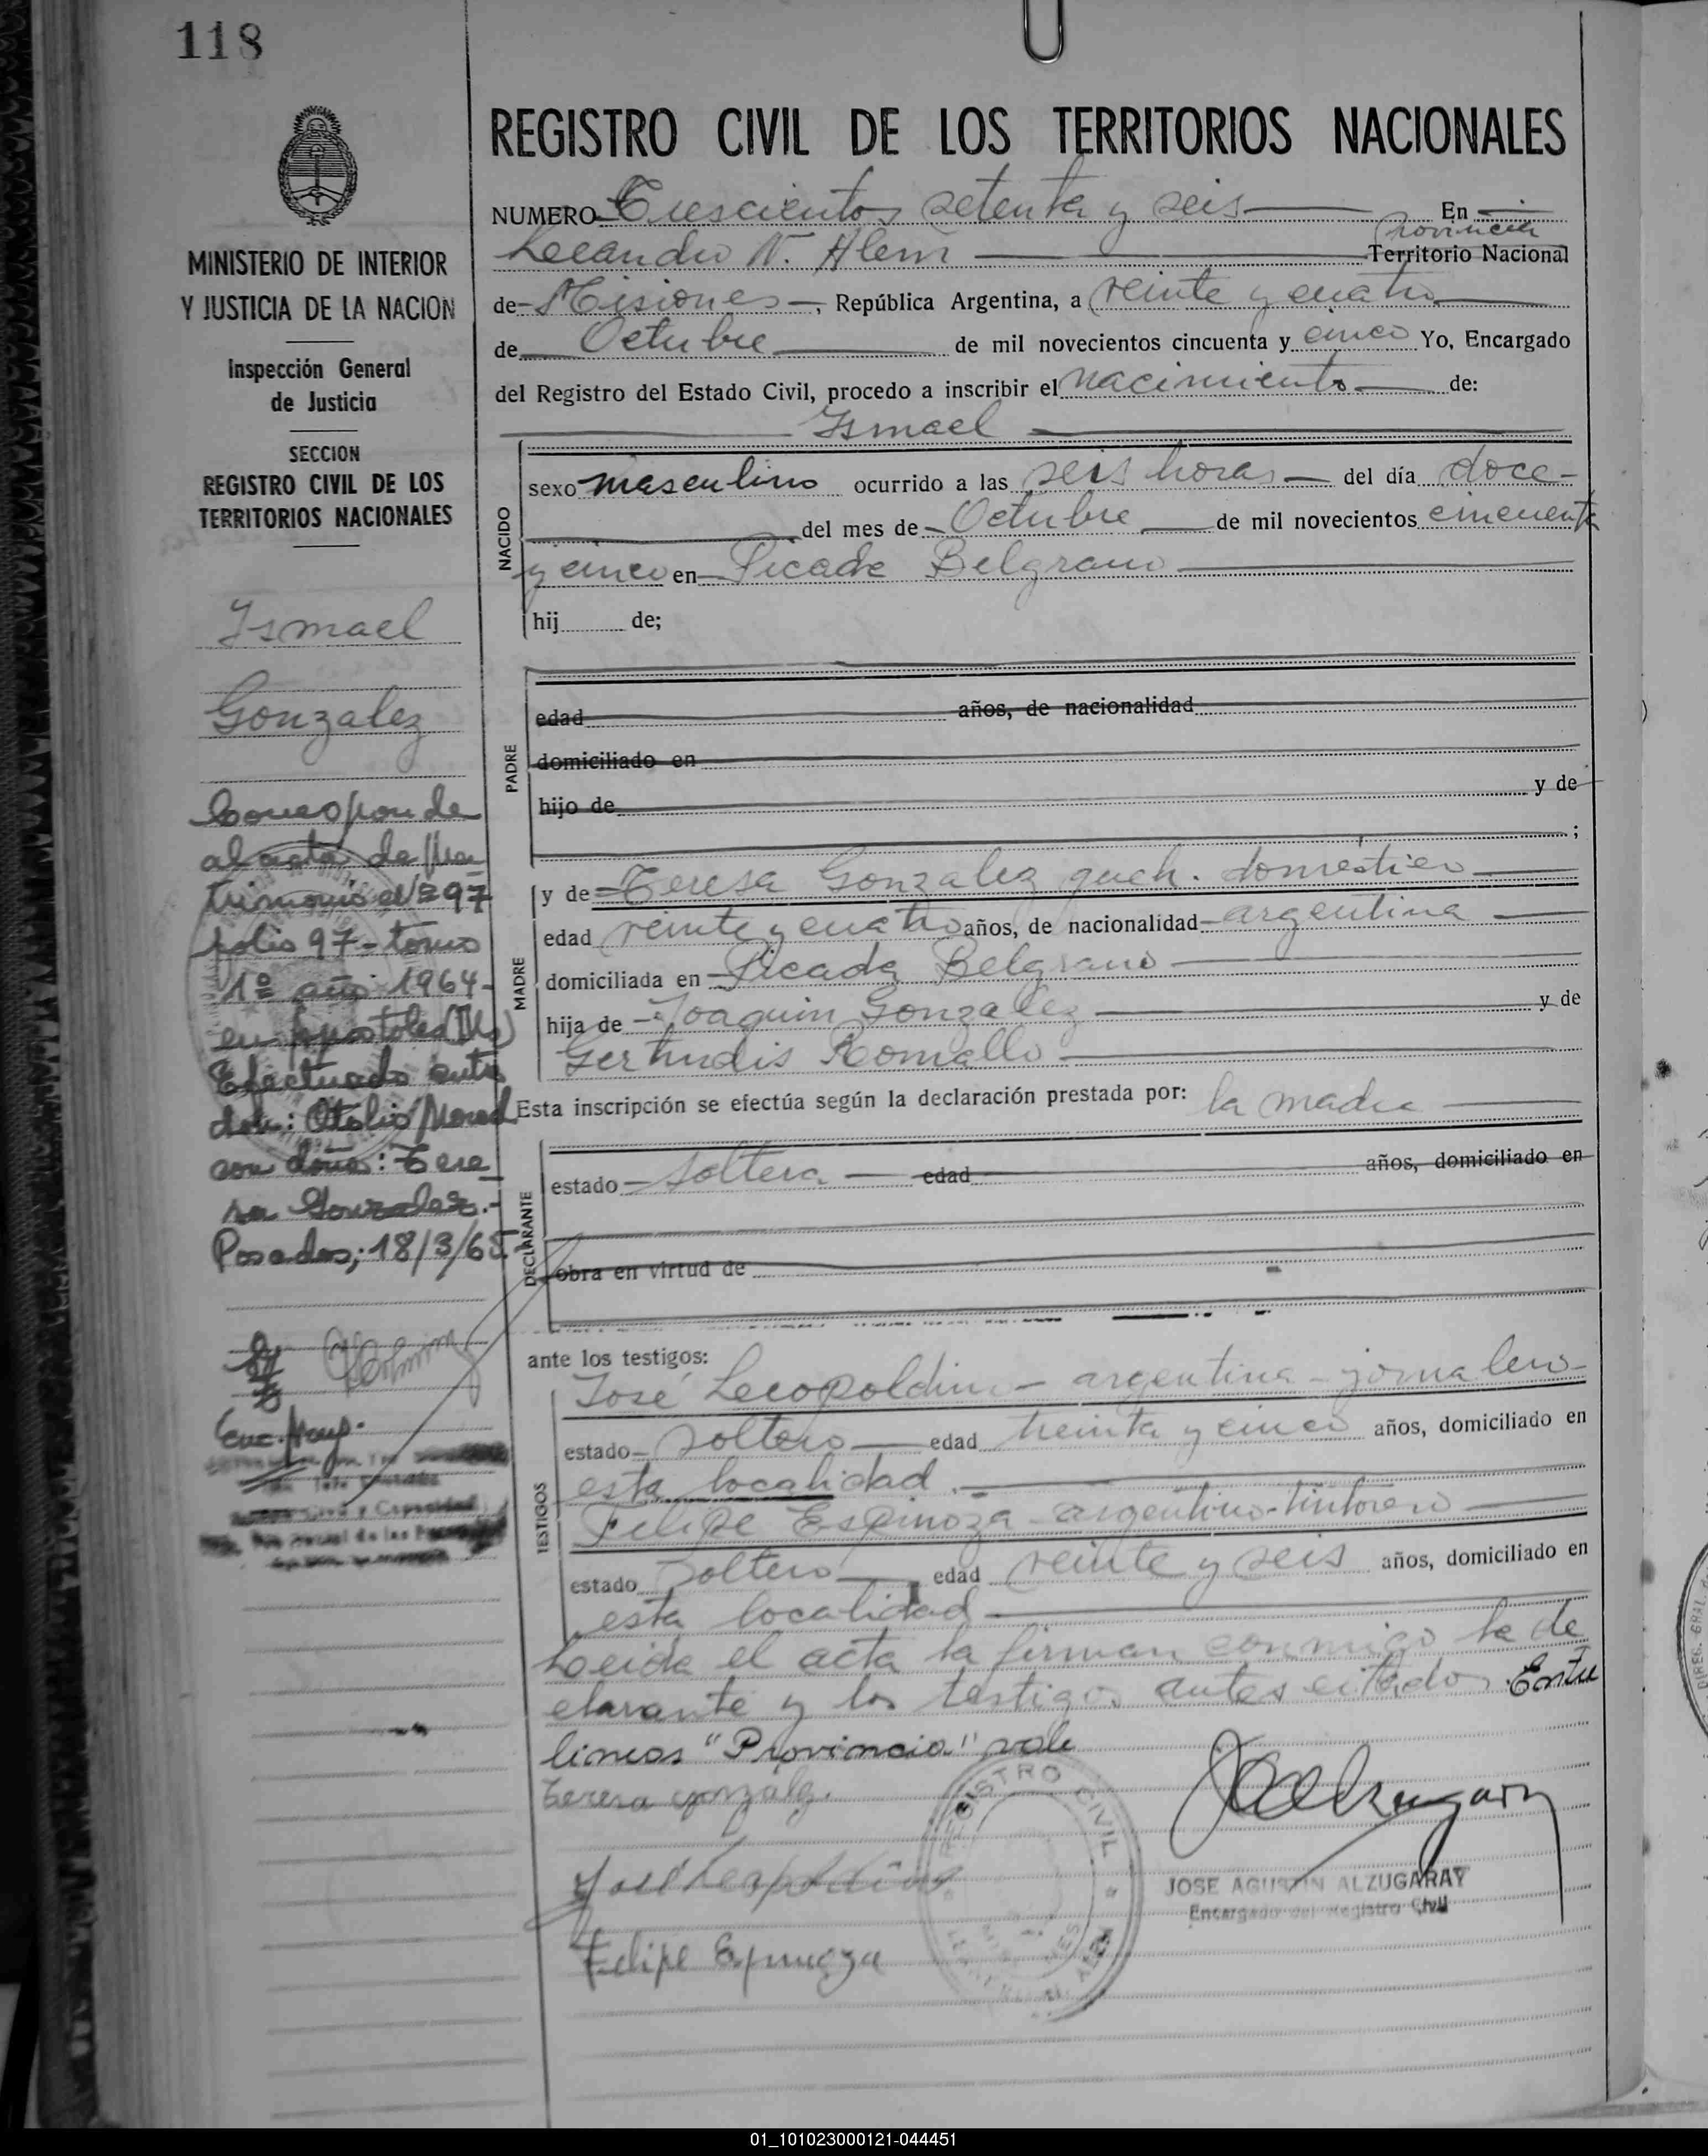 118
REGISTRO CIVIL DE LOS TERRITORIOS NACIONALES
MINISTERIO DE INTERIOR
Y JUSTICIA DE LA NACION
Inspección General
de Justicia
SECCION
REGISTRO CIVIL DE LOS
TERRITORIOS NACIONALES
Ismael
Gonzalez
Corresponde
al acta de Ma
trimonio Nº 97
folio 97 - tomo
1º año 1964-
en Apostoles (Ms)
Efectuado entre
don: Otolio
con doña: Tere
sa Gonzalez.-
Posadas; 18/3/65-
NUMERO Trescientos setenta y seis En
Provincia
Leandro N. Alem Territorio Nacional
de Misiones, República Argentina, a veinte y cuatro
de Octubre de mil novecientos cincuenta y cinco Yo, Encargado
del Registro del Estado Civil, procedo a inscribir el nacimiento de:
Ismael
NACIDO
sexo masculino ocurrido a las seis horas del día doce
del mes de Octubre de mil novecientos cincuenta
y cinco en Picada Belgrano
hij de;
PADRE
edad años, de nacionalidad
domiciliado en
hijo de y de
;
MADRE
y de Teresa Gonzalez queh. domestico
edad veinte y cuatro años, de nacionalidad argentina
domiciliada en Picada Belgrano
hija de Joaquin Gonzalez y de
Gertrudis Romallo
Esta inscripción se efectúa según la declaración prestada por: la madre
DECLARANTE
estado soltera edad años, domiciliado en
obra en virtud de
ante los testigos:
TESTIGOS
José Leopoldino - argentina - jornalero
estado soltero edad treinta y cinco años, domiciliado en
esta localidad.
Felipe Espinoza - argentino - tintorero
estado soltero edad veinte y seis años, domiciliado en
esta localidad
Leida el acta la firman conmigo la de
clarante y los testigos antes citados. Entre
lineas "Provincia" vale
Teresa gonzalez.
José Leopoldino
Felipe Espinoza
REGISTRO CIVIL
JOSE AGUSTIN ALZUGARAY
Encargado del Registro Civil
01_101023000121-044451